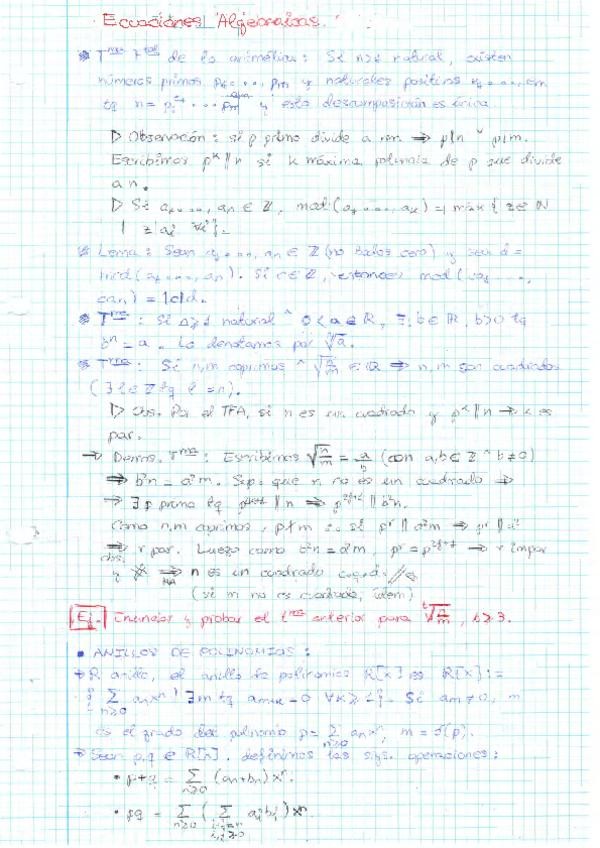 Ecuaciones Algebraicas.
T^ma F^tal de la aritmética: Si n>1 natural, existen
números primos p1, ..., pm y naturales positivos
tq n = p1 ... pm y esta descomposición es única
▷ Observación: si p primo divide a nm ⇒ p|n ˅ p|m.
Escribimos p^k || n si k máxima potencia de p que divide
a n.
▷ Si a1, ..., an ∈ ℤ, mcd(a1, ..., an) = máx { z ∈ ℕ
| z|ai ∀i }.
Lema: Sean a1, ..., an ∈ ℤ (no todos cero) y sea d =
mcd(a1, ..., an). Si c ∈ ℤ, entonces mcd(ca1, ...,
can) = |c|d.
T^ma: Si n≥1 natural ^ 0<a∈ℝ, ∃! b∈ℝ, b>0 tq
b^n = a. Lo denotamos por ⁿ√a.
T^ma: Si n,m coprimos ^ √(n/m) ∈ ℚ ⇒ n,m son cuadrados
(∃ l∈ℤ tq l² = n).
▷ Obs. Por el TFA, si n es un cuadrado y p^k || n → k es
par.
→ Demos. T^ma: Escribimos √(n/m) = a/b (con a,b∈ℤ ^ b≠0)
⇒ b²n = a²m. Sup. que n no es un cuadrado ⇒
⇒ ∃ p primo tq || n ⇒ || b²n.
Como n,m coprimos, p∤m si p^r || a²m ⇒ p^r || a²
⇒ r par. Luego como b²n = a²m, ⇒ r impar
obs.
y ⇒ n es un cuadrado
(si m no es cuadrado, ídem)
Ej. Enunciar y probar el t^ma anterior para ᵗ√(n/m), t≥3.
• ANILLOS DE POLINOMIOS:
→ R anillo, el anillo de polinomios R[x] es R[x]:=
{ Σ n≥0 an x^n | ∃ m tq am+k = 0 ∀k≥1 }. Si am≠0, m
es el grado del polinomio p = Σ n≥0 an x^n, m = ∂(p).
→ Sean p,q ∈ R[x], definimos las sigs. operaciones:
• p+q = Σ n≥0 (an+bn) x^n.
• pq = Σ n≥0 ( Σ i+j=n i,j≥0 ai bj ) x^n